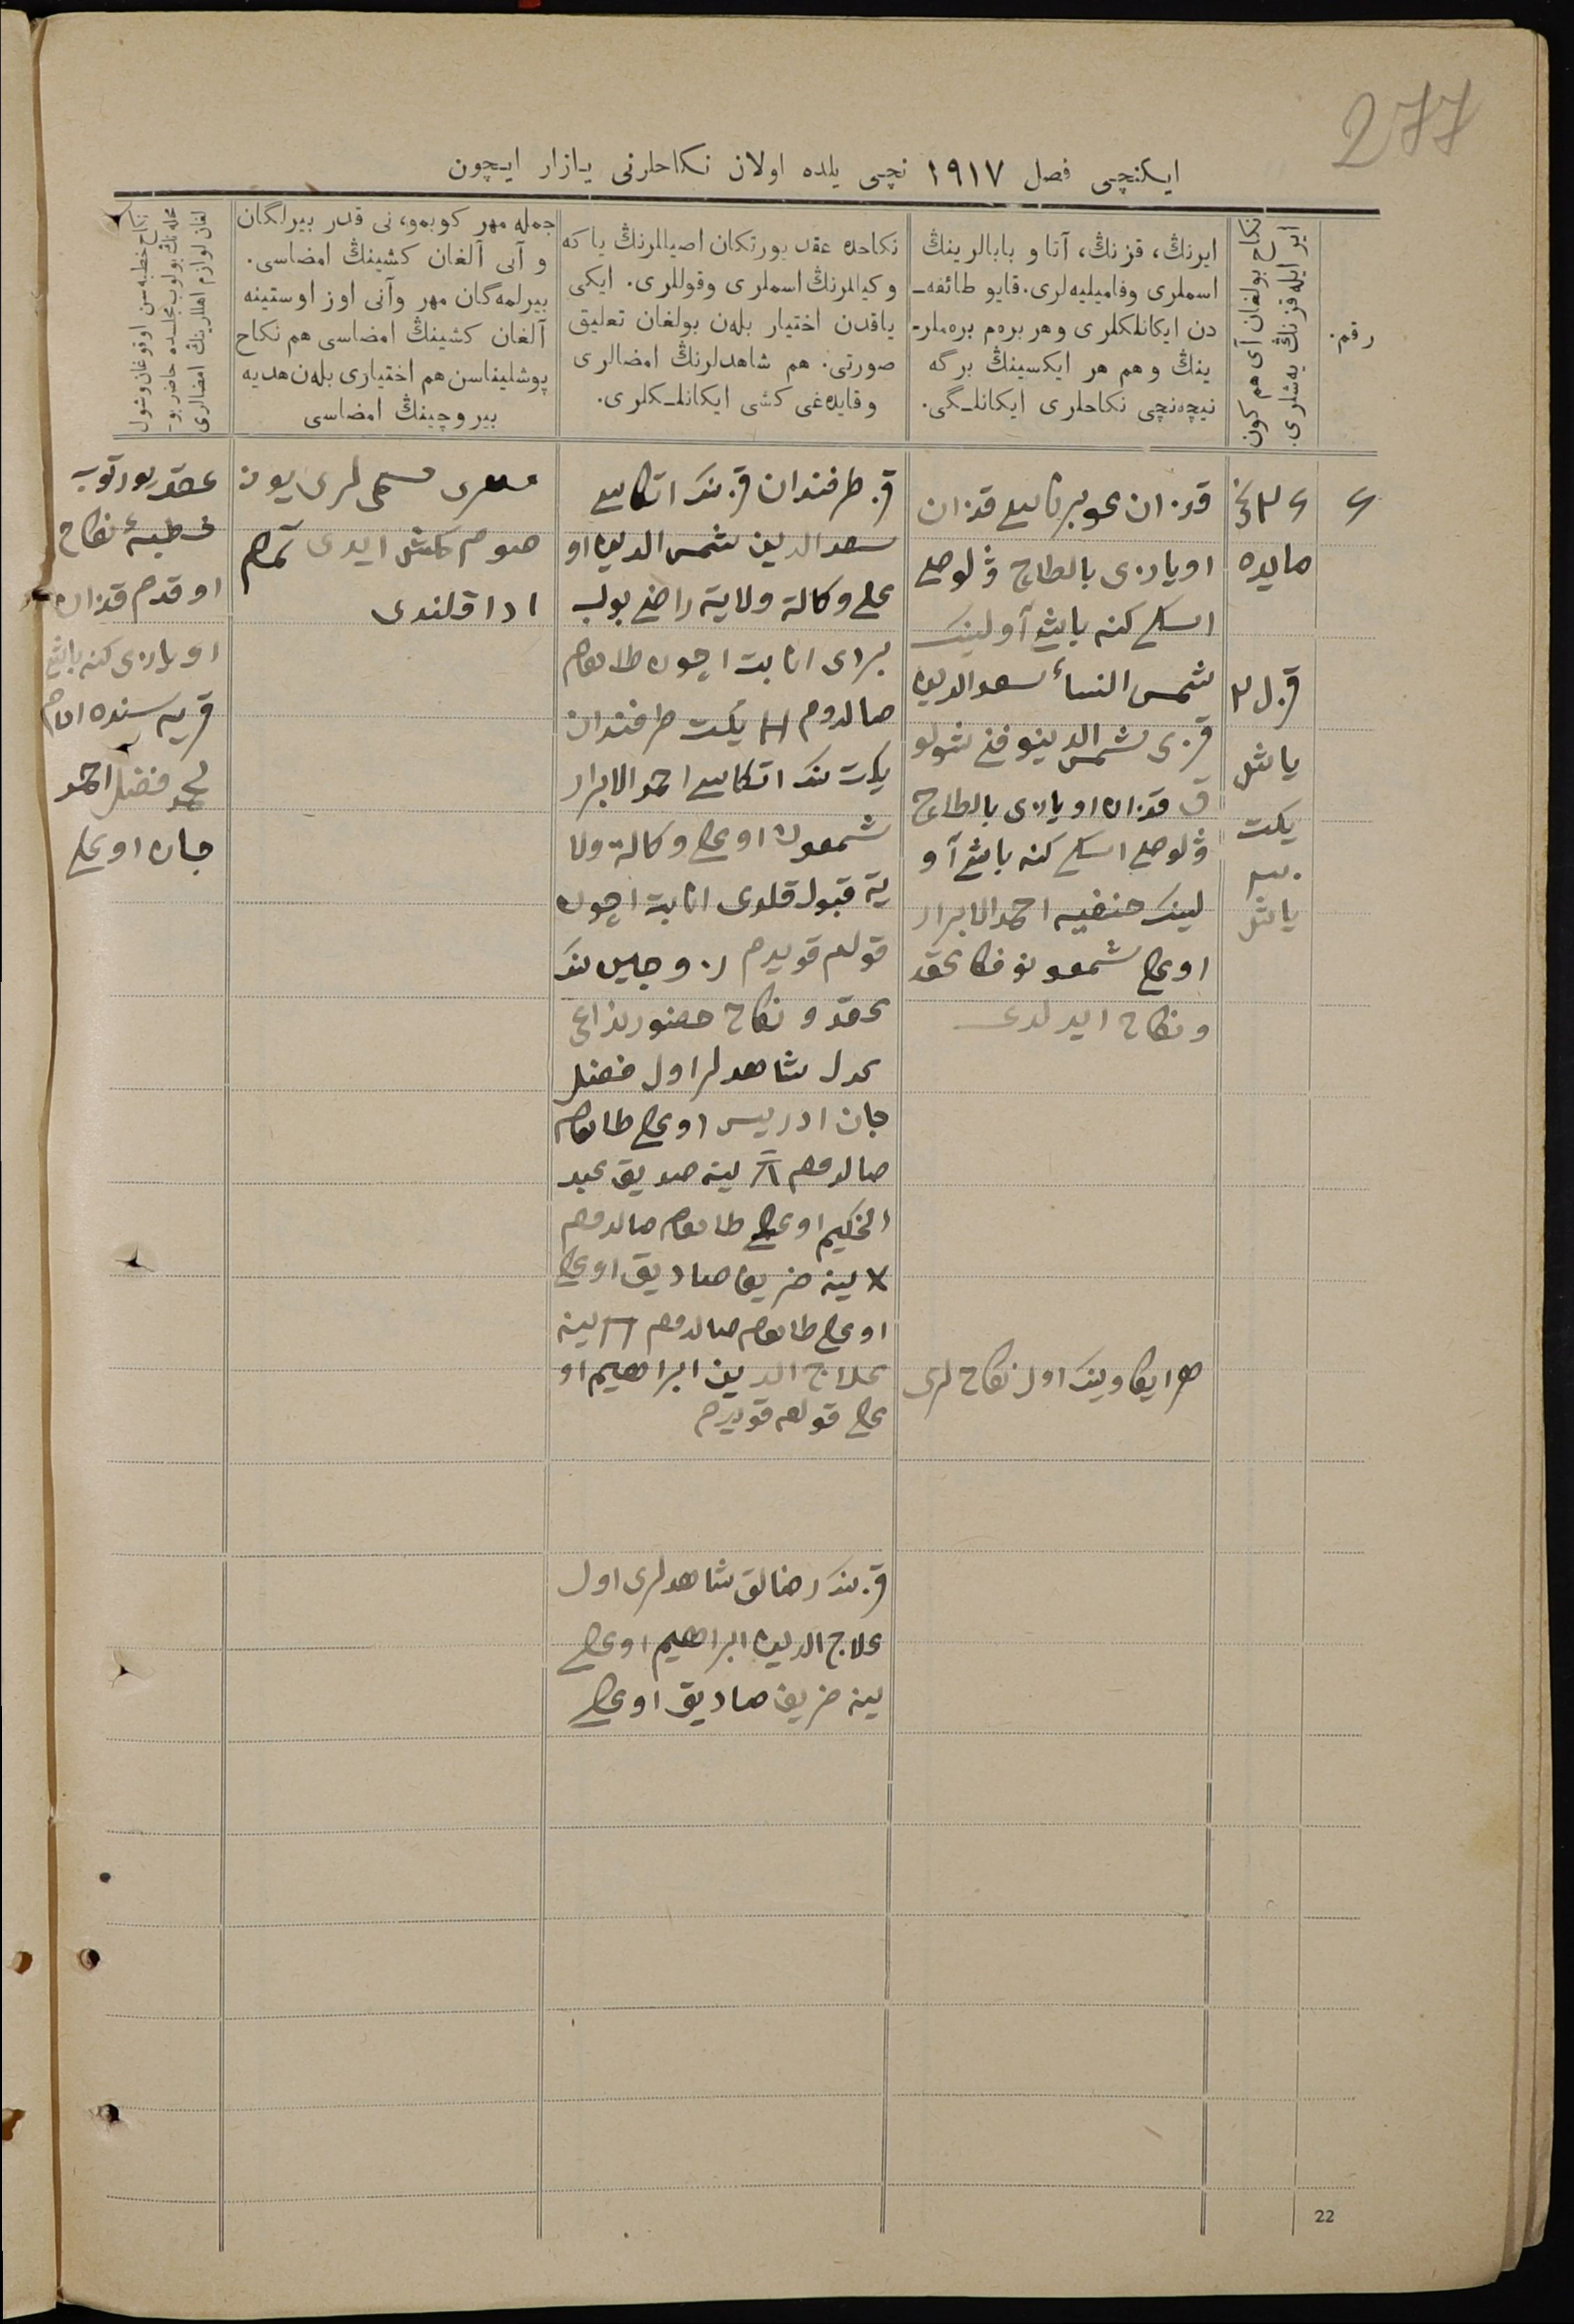 277
ایکنچی فصل ١٩١٧ نچی یلده اولان نکاحلرنی یازار ایچون
رقم.
نکاح بولغان آی هم کون
ایر ایله قزنڭ یه‌شلری.
ایرنڭ، قزنڭ، آتا و بابالرینڭ
اسملری وفامیلیه‌لری. قایو طائفه‌ـ
دن ایکانلکلری و هر بره‌م بره‌ملرـ
ینڭ و هم هر ایکسینڭ برگه
نیچه‌نچی نکاحلری ایکانلـگی.
نکاحده عقد یورتکان اصیللرنڭ یا که
وکیللرنڭ اسملری وقوللری. ایکی
یاقدن اختیار بله‌ن بولغان تعلیق
صورتی. هم شاهدلرنڭ امضالری
وقایده‌غی کشی ایکانلـکلری.
جمله مهر کوبمو، نی قدر بیرلگان
و آنی آلغان کشینڭ امضاسی.
بیرلمه‌گان مهر وآنی اوز اوستینه
آلغان کشینڭ امضاسی هم نکاح
پوشلیناسن هم اختیاری بله‌ن هدیه
بیروچینڭ امضاسی
نکاح خطبه‌سن اوقوغان وشول
محله‌نڭ بولوب مجلسده حاضر بوـ
لغان لوازم اهللرینڭ امضالری
مایده
قزل
یاشل
یکت
یاشل
قزان
اویازی بالطاج ڤولوصلی
اسکی کنه باش آولینڭ
شمس النساء سعدالدین
قزی شمس الدینوفنی شولو
ق قزان اویازی بالطاج
ڤولوصلی اسکی کنه باش آو
لینڭ حنفیه احمدالابرار
اوغلی شمعونوفکا عقد
و نکاح ایدلدی
هر ایکاوینڭ اول نکاح لری
قز طرفندان قزننڭ اتکاسی
سعدالدین شمس الدین او
غلی وکالة ولایة راضی بولب
بردی اثابت اچون طامغام
صالدوم یکت طرفندان
یکت ننڭ اتکاسی احمدالابرار
شمعون اوغلی وکالة ولا
یة قبول قلدی اثابت اچون
قولم قویدم زوجین ننڭ
عقد و نکاح حضورنداغی
عدل شاهدلر اول فضل
جان ادریس اوغلی طامغام
صالدوم ینه صدیق عبد
الحکیم اوغلی طامغام صالدوم
ینه ضریف صادیق اوغلی
اوغلی طامغام صالدوم ینه
علاج الدین ابراهیم او
غلی قولم قویدم
قزننڭ رضالق شاهدلری اول
علاج الدین ابراهیم اوغلی
ینه ضریف صادیق اوغلی
ایدی تمام
ادا قلندی
عقد یورتوب
خطبهٔ نکاح
اوقدم قزان
اویازی کنه باش
قریه سنده امام
محمد فضل احمد
جان اوغلی
22